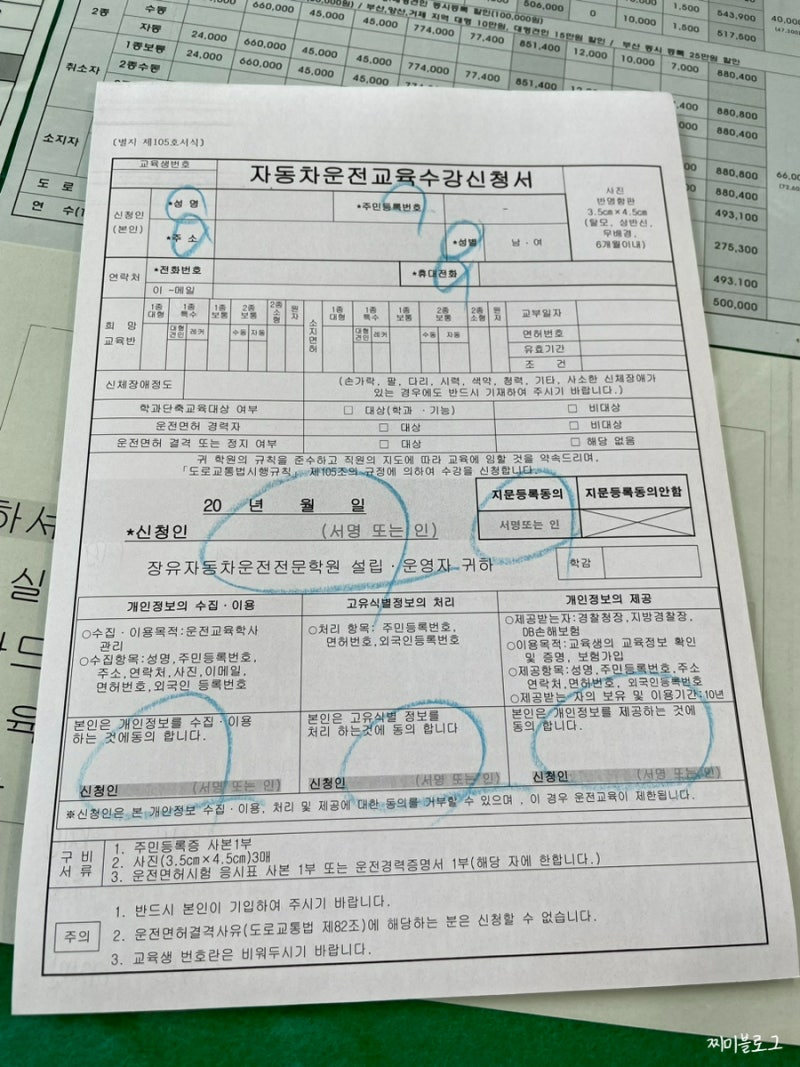 2종 수동 660,000 45,000 45,000 774,000 77,400 506,000 0 10,000 1,500 543,900 40,000
자동 24,000 660,000 45,000 45,000 774,000 77,400 851,400 12,000 10,000 1,500 517,500
1종보통 24,000 660,000 45,000 45,000 774,000 77,400 851,400 10,000 7,000 880,400
2종수동
취소자
880,800
880,400
소지자
880,800
880,400
도 로
493,100
연 수
275,300
493,100
500,000
[별지 제105호서식]
교육생번호
자동차운전교육수강신청서
사진
반명함판
3.5㎝×4.5㎝
(탈모, 상반신,
무배경,
6개월이내)
신청인
(본인)
*성 명
*주민등록번호 -
*주 소
*성별 남 · 여
연락처
*전화번호
*휴대전화
이 -메일
희 망
교육반
1종
대형
1종
특수
1종
보통
2종
보통
2종
소형
원
자
대형
견인
레커
수동
자동
소지면허
1종
대형
1종
특수
1종
보통
2종
보통
2종
소형
원
자
대형
견인
레커
수동
자동
교부일자
면허번호
유효기간
조 건
신체장애정도
(손가락, 팔, 다리, 시력, 색약, 청력, 기타, 사소한 신체장애가
있는 경우에도 반드시 기재하여 주시기 바랍니다.)
학과단축교육대상 여부 □ 대상(학과 · 기능) □ 비대상
운전면허 경력자 □ 대상 □ 비대상
운전면허 결격 또는 정지 여부 □ 대상 □ 해당 없음
귀 학원의 규칙을 준수하고 직원의 지도에 따라 교육에 임할 것을 약속드리며,
「도로교통법시행규칙」 제105조의 규정에 의하여 수강을 신청합니다.
20 년 월 일
*신청인 (서명 또는 인)
지문등록동의 지문등록동의안함
서명또는 인
장유자동차운전전문학원 설립 · 운영자 귀하
학감
개인정보의 수집 · 이용
고유식별정보의 처리
개인정보의 제공
○수집 · 이용목적:운전교육학사
관리
○수집항목:성명,주민등록번호,
주소,연락처,사진,이메일,
면허번호,외국인 등록번호
○처리 항목: 주민등록번호,
면허번호,외국인등록번호
○제공받는자:경찰청장,지방경찰장,
DB손해보험
○이용목적:교육생의 교육정보 확인
및 증명, 보험가입
○제공항목:성명,주민등록번호,주소
연락처,면허번호, 외국인등록번호
○제공받는 자의 보유 및 이용기간:10년
본인은 개인정보를 수집 · 이용
하는 것에동의 합니다.
신청인 (서명 또는 인)
본인은 고유식별 정보를
처리 하는것에 동의 합니다
신청인 (서명 또는 인)
본인은 개인정보를 제공하는 것에
동의 합니다.
신청인 (서명 또는 인)
※신청인은 본 개인정보 수집 · 이용, 처리 및 제공에 대한 동의를 거부할 수 있으며 , 이 경우 운전교육이 제한됩니다.
구 비
서 류
1. 주민등록증 사본1부
2. 사진(3.5㎝×4.5㎝)3매
3. 운전면허시험 응시표 사본 1부 또는 운전경력증명서 1부(해당 자에 한합니다.)
주의
1. 반드시 본인이 기입하여 주시기 바랍니다.
2. 운전면허결격사유(도로교통법 제82조)에 해당하는 분은 신청할 수 없습니다.
3. 교육생 번호란은 비워두시기 바랍니다.
찌미블로그